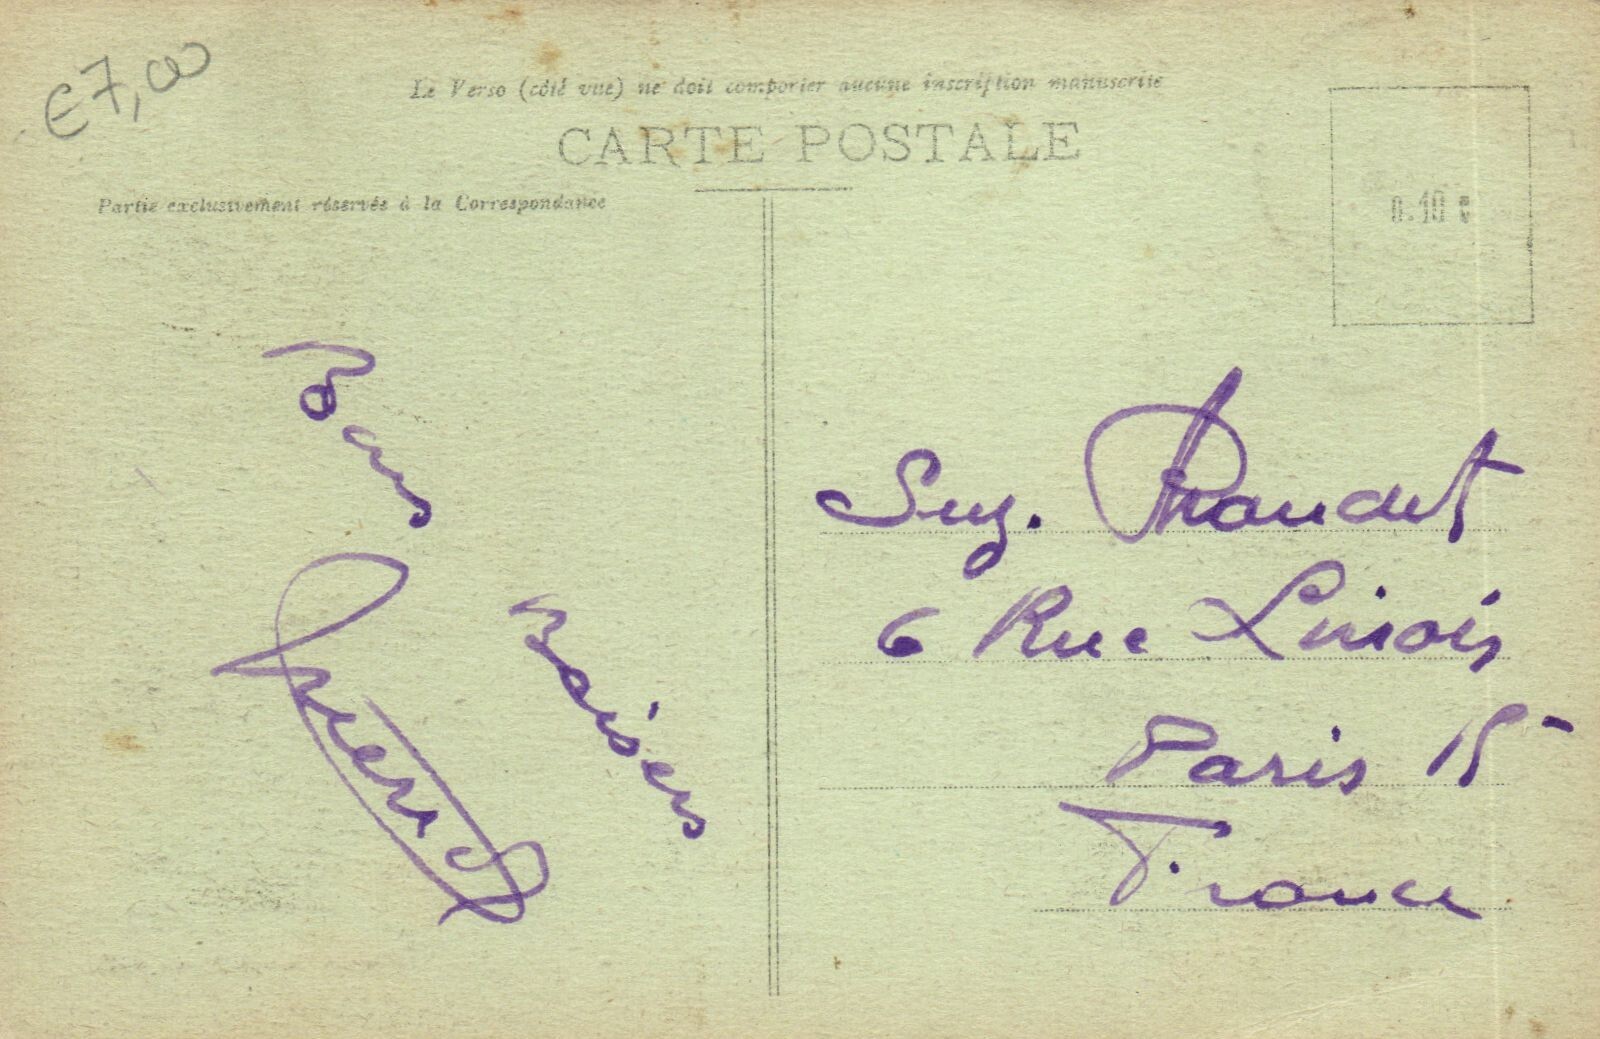 €7,00
Le Verso (côté vue) ne doit comporter aucune inscription manuscrite
CARTE POSTALE
Partie exclusivement réservée à la Correspondance
0.10 c
Bons
Baisers
Suz.
6 Rue Linois
Paris 15
France